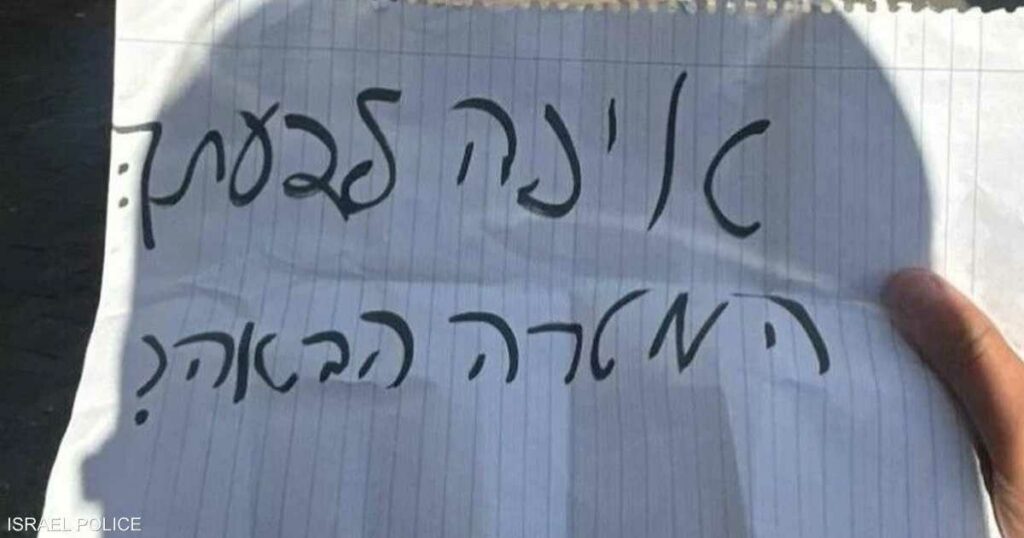 איזה לדעתך:
המטרה הבאה?
ISRAEL POLICE